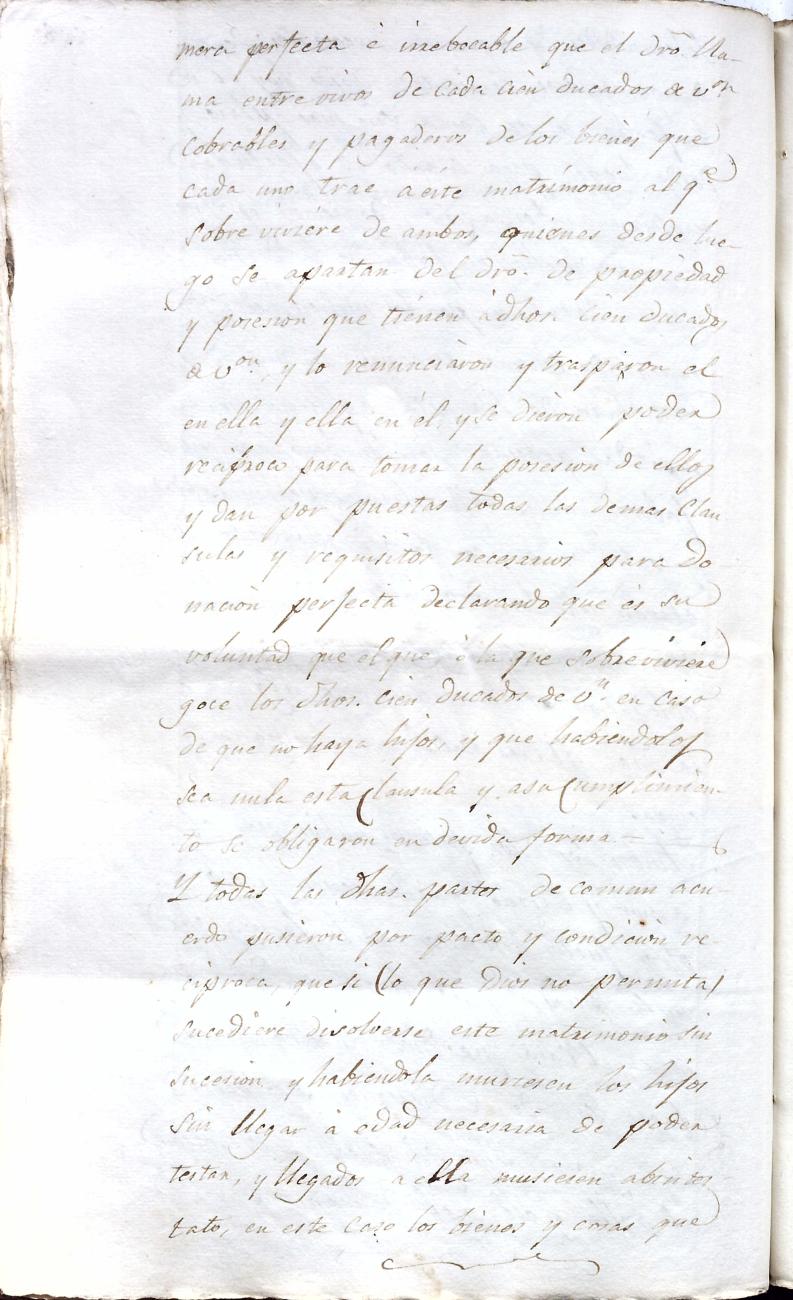 mera perfecta è irrebocable que el dro. lla-
ma entre vivos de cada cien ducados de von
cobrables y pagaderos de los bienes que
cada uno trae à este matrimonio al qe.
sobreviviére de ambos, quienes desde lue-
go se apartan del dro. de propiedad
y posesion que tienen à dhos. cien ducados
de von. y lo renunciaron y trasparon el
en ella y ella en él, y se dieron poder
reciproco para tomar la posesion de ellos
y dan por puestas todas las demas Clau
sulas y requisitos necesarios para Do
nacion perfecta declarando que es su
voluntad que el que, ò la que sobreviviere
goce los dhos. cien ducados de vn. en caso
de que no haya hijos, y que habiendolos
sea nula esta Clausula y a su Cumplimien-
to se obligaron en devida forma —
Y todas las dhas. partes de comun acu-
erdo pusieron por pacto y condicion re-
ciproca, que si (lo que Dios no permita)
sucediere disolverse este matrimonio sin
sucesion, y habiendola muriesen los hijos
sin llegar à edad necesaria de poder
testar, y llegados à ella muriesen abintes
tato, en este caso los bienes y cosas que